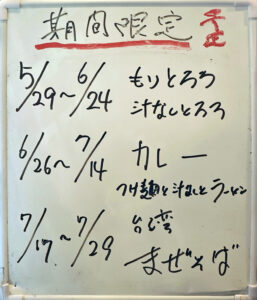 期間限定
予定
5/29〜6/24 もりとろろ
汁なしとろろ
6/26〜7/14 カレー
つけ麺と汁なしとラーメン
7/17〜7/29 台湾
まぜそば